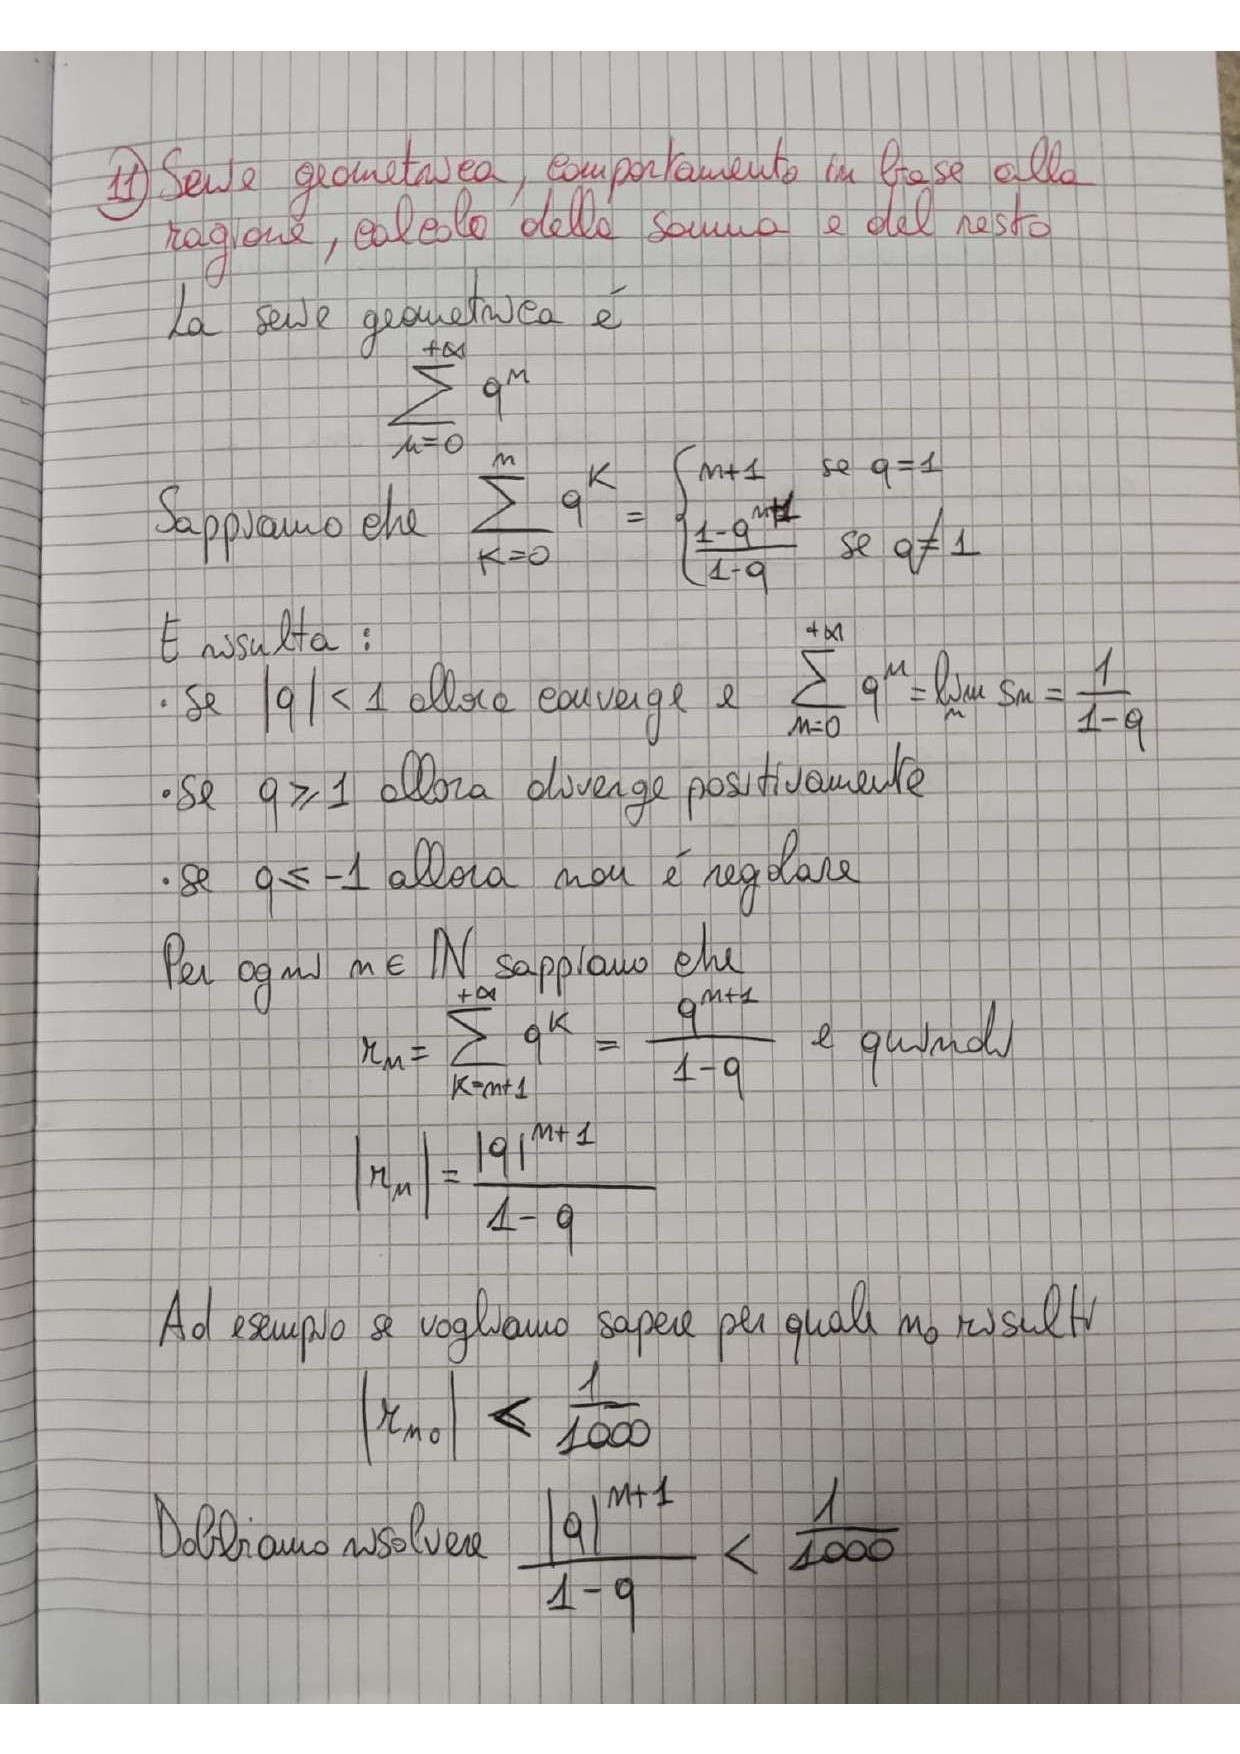 11) Serie geometrica, comportamento in base alla
ragione, calcolo della somma e del resto
La serie geometrica é
+∞
∑ qⁿ
n=0
Sappiamo che ∑_{K=0}^{n} q^K = { n+1 se q=1
{ (1-q^{n+1})/(1-q) se q≠1
E risulta:
· se |q| < 1 allora converge e ∑_{n=0}^{+∞} qⁿ = lim_n sn = 1/(1-q)
· se q ⩾ 1 allora diverge positivamente
· se q ⩽ -1 allora non é regolare
Per ogni n ∈ ℕ sappiamo che
r_n = ∑_{K=n+1}^{+∞} q^K = q^{n+1}/(1-q) e quindi
|r_n| = |q|^{n+1}/(1-q)
Ad esempio se vogliamo sapere per quale n₀ risulti
|r_{n₀}| < 1/1000
Dobbiamo risolvere |q|^{n+1}/(1-q) < 1/1000